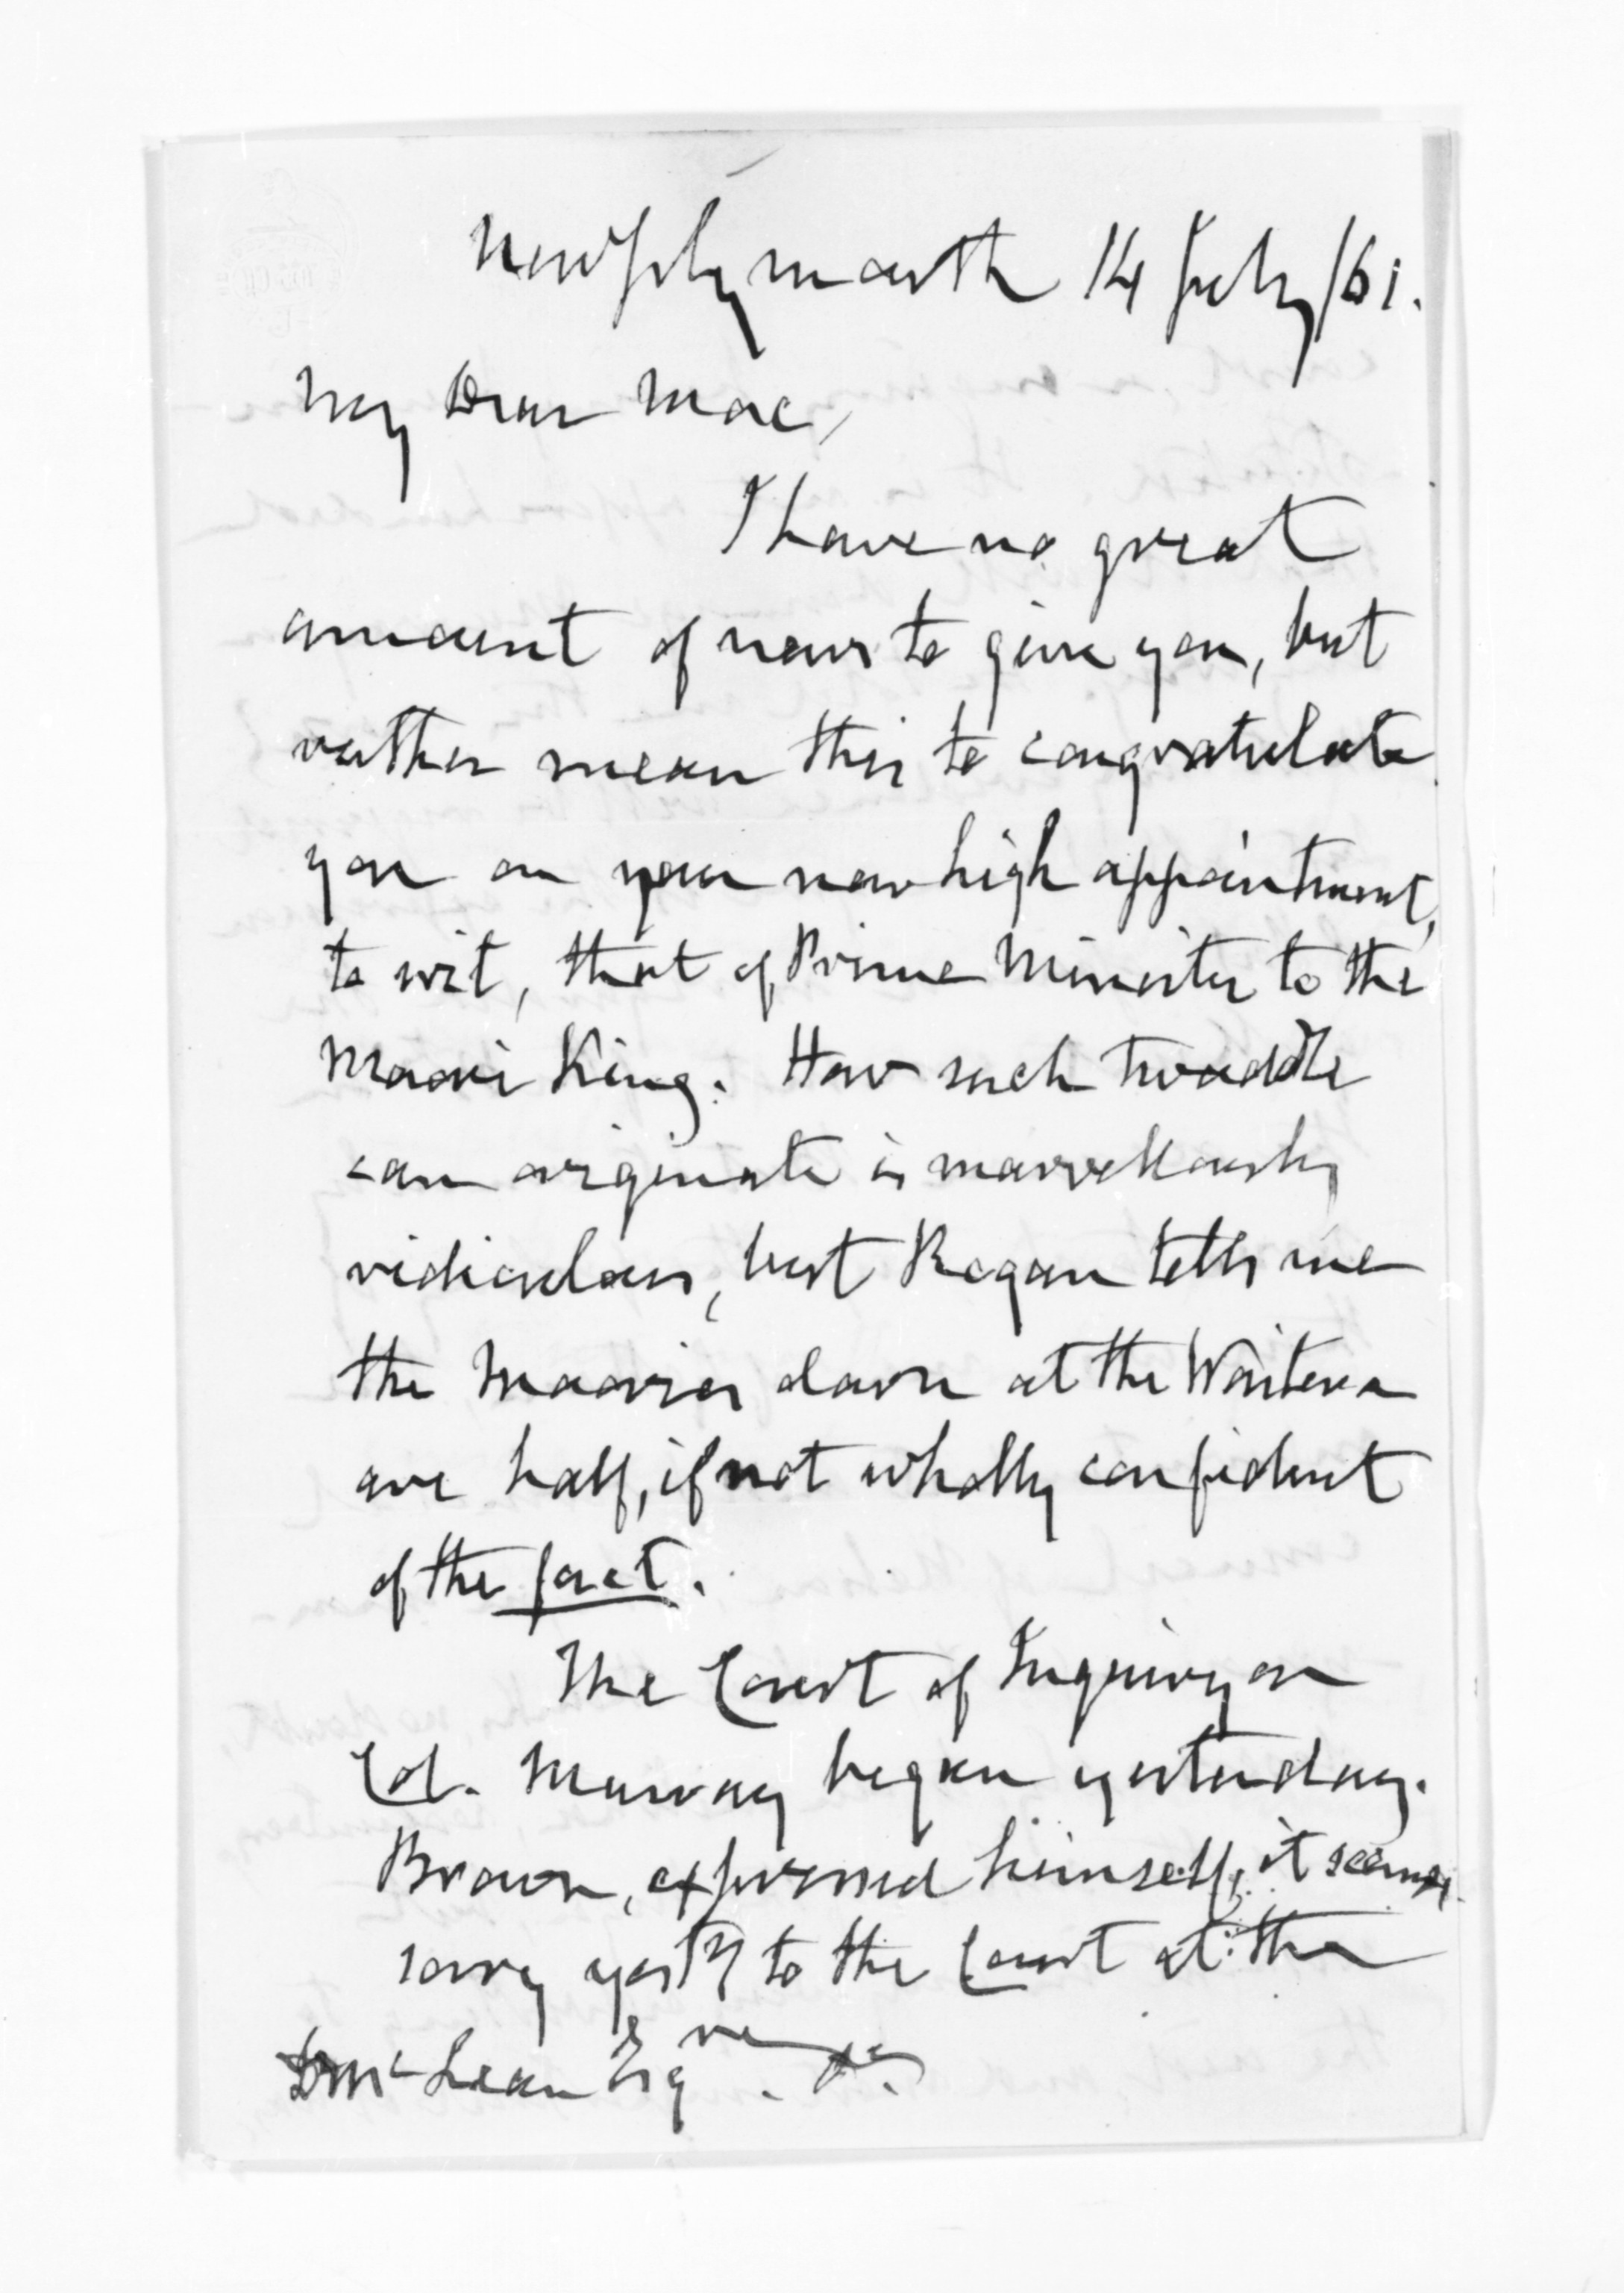 New Plymouth 14 July /61.
My Dear Mac,
I have no great
amount of news to give you, but
rather mean this to congratulate
you on your new high appointment,
to wit, that of Prime Minister to the
Maori King. How such twaddle
can originate is marvellously
ridiculous, but Rogan tells me
the Maories down at the Waitera
are half, if not wholly confident
of the fact.
The Court of Inquiry on
Col. Murray began yesterday.
Brown, expressed himself, it seems,
sorry yesty to the Court at the
D McLean Esqre.